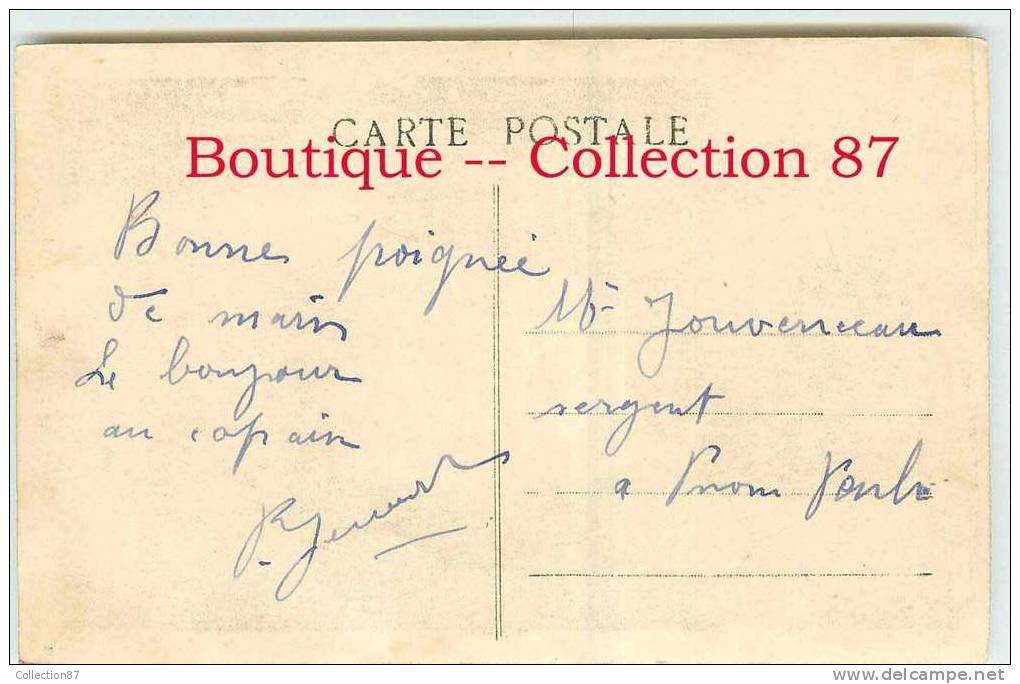 CARTE POSTALE
Boutique -- Collection 87
Bonne poignée
de mains
Le bonjour
au copain
Mr Jouverneau
sergent
a Pnom Penh
Collection87
delcampe.net